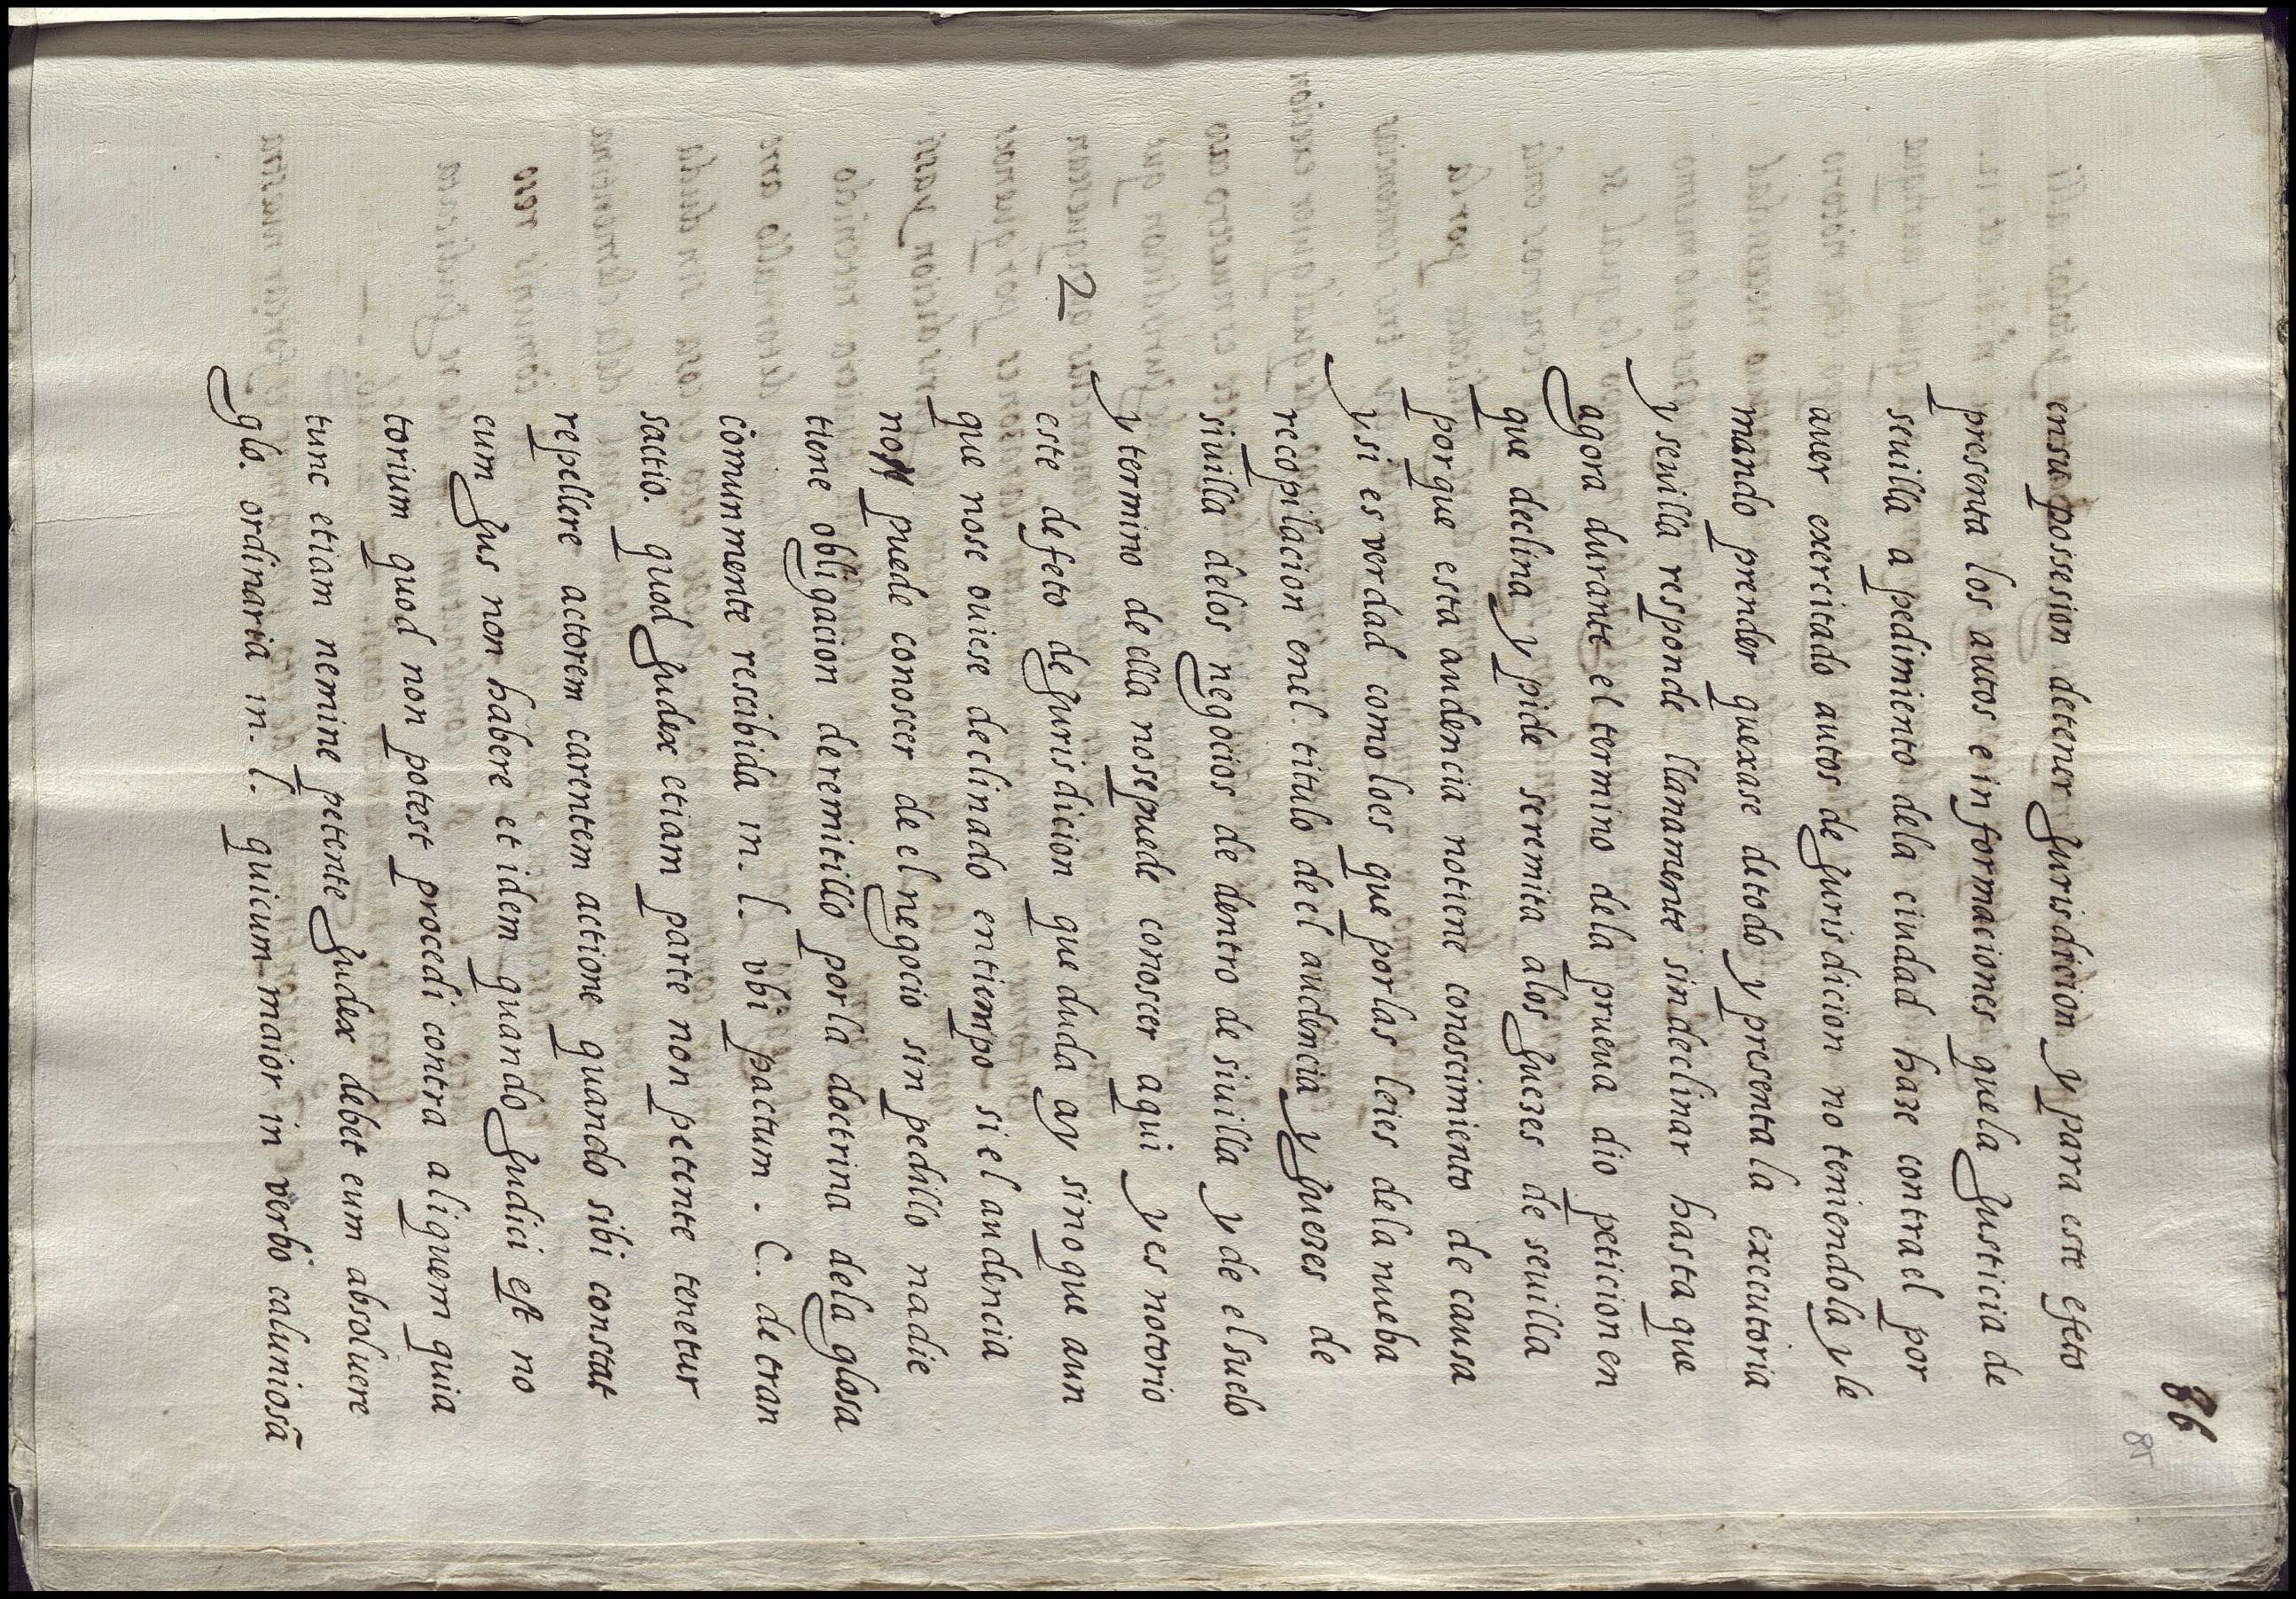 86
85
ensu possesion detener Jurisdicion y para este efeto
presenta los autos e informaciones que la Justicia de
seuilla a pedimiento dela ciudad haze contra el por
auer exercitado autos de Jurisdicion no teniendola y le
mando prender quexase detodo y presenta la executoria
y seuilla responde llanamente sin declinar hasta que
agora durante el termino dela prueua dio peticion en
que declina y pide seremita alos Juezes de seuilla
porque esta audencia notiene conoscimiento de causa
y si es verdad como loes que por las leies dela nueba
recopilacion enel titulo de el audencia y Juezes de
siuilla delos negocios de dentro de siuilla y de el suelo
y termino de ella nosepuede conoscer aqui y es notorio
2 este defeto de Jurisdicion que duda ay sino que aun
que nose ouiese declinado entiempo si el audencia
no puede conoscer de el negocio sin pedillo nadie
tiene obligacion de remitillo por la doctrina dela glosa
cõmunmente rescibida in. l. vbi pactum. C. de tran
sactio. quod Judex etiam parte non petente tenetur
repellere actorem carentem actione quando sibi constat
eum Jus non habere et idem quando Judici est no
torium quod non potest procedi contra aliquem quia
tunc etiam nemine petente Judex debet eum absoluere
glo. ordinaria in. l. quicum maior in verbo caluniosã